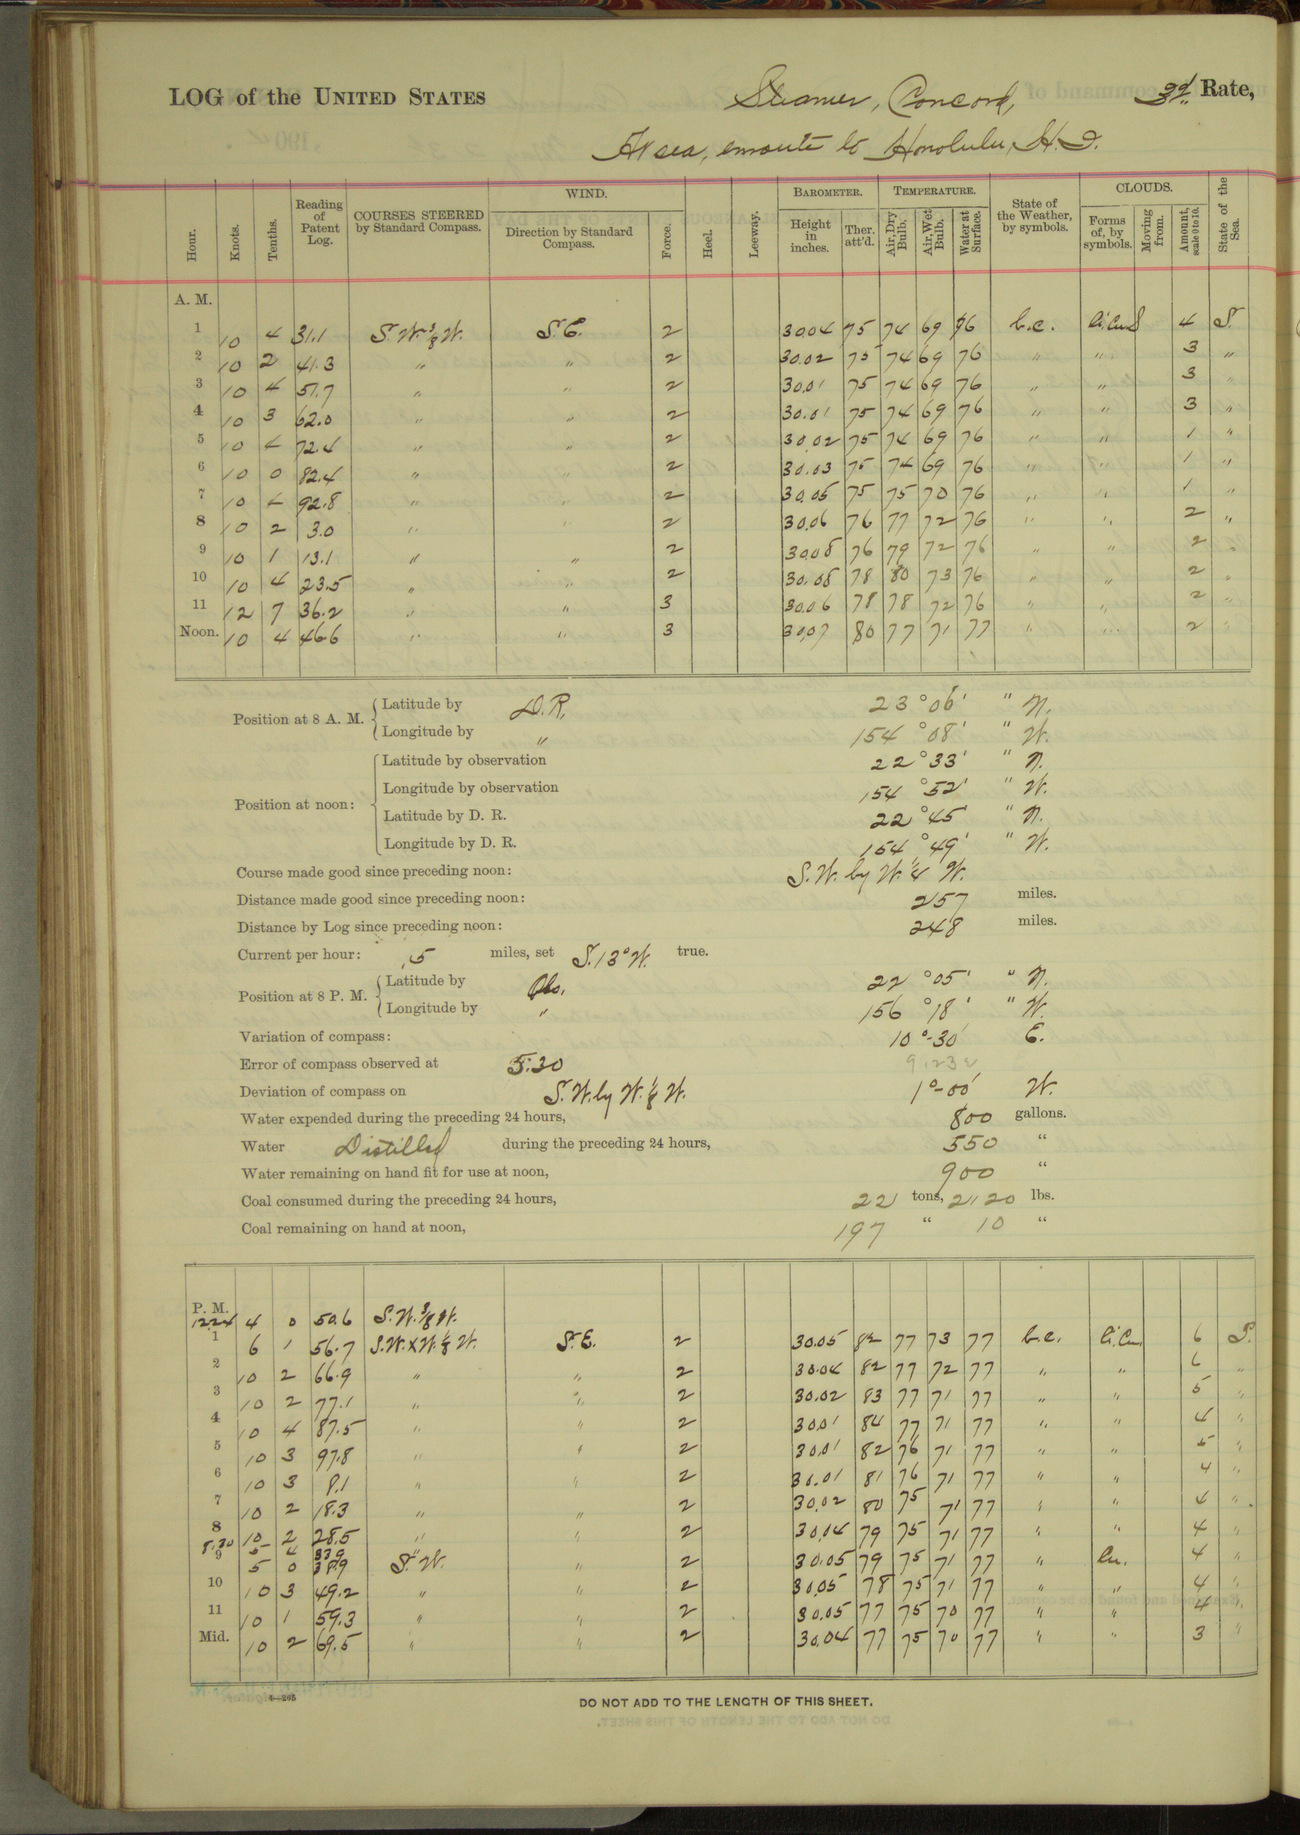 LOG of the UNITED STATES Steamer, Concord, 3d Rate,
At sea, enroute to Honolulu, H. I.
Hour. Knots. Tenths. Reading of Patent Log. COURSES STEERED by Standard Compass. WIND. Direction by Standard Compass. Force. Heel. Leeway. BAROMETER. Height in inches. Ther. att'd. TEMPERATURE. Air, Dry Bulb. Air, Wet Bulb. Water at Surface. State of the Weather, by symbols. CLOUDS. Forms of, by symbols. Moving from. Amount, scale 0 to 10. State of the Sea.
A. M.
1 10 4 31.1 S.W. 3/8 W. S.E. 2 30.04 75 74 69 76 b.c. Ci.Cu.S 4 S.
2 10 2 41.3 " " 2 30.02 75 74 69 76 " " 3 "
3 10 4 51.7 " " 2 30.01 75 74 69 76 " " 3 "
4 10 3 62.0 " " 2 30.01 75 74 69 76 " " 3 "
5 10 4 72.4 " " 2 30.02 75 74 69 76 " " 1 "
6 10 0 82.4 " " 2 30.03 75 74 69 76 " " 1 "
7 10 4 92.8 " " 2 30.05 75 75 70 76 " " 1 "
8 10 2 3.0 " " 2 30.06 76 77 72 76 " " 2 "
9 10 1 13.1 " " 2 30.08 76 79 72 76 " " 2 "
10 10 4 23.5 " " 2 30.08 78 80 73 76 " " 2 "
11 12 7 36.2 " " 3 30.06 78 78 72 76 " " 2 "
Noon. 10 4 46.6 " " 3 30.07 80 77 71 77 " " 2 "
Position at 8 A. M. Latitude by D.R. 23 ° 06 ' " N.
Longitude by " 154 ° 08 ' " W.
Position at noon: Latitude by observation 22 ° 33 ' " N.
Longitude by observation 154 ° 52 ' " W.
Latitude by D. R. 22 ° 45 ' " N.
Longitude by D. R. 154 ° 49 ' " W.
Course made good since preceding noon: S.W. by W. 1/4 W.
Distance made good since preceding noon: 257 miles.
Distance by Log since preceding noon: 248 miles.
Current per hour: .5 miles, set S. 13° W. true.
Position at 8 P. M. Latitude by Obs. 22 ° 05 ' " N.
Longitude by " 156 ° 18 ' " W.
Variation of compass: 10°-30' E.
Error of compass observed at 5:30
Deviation of compass on S.W. by W. 1/8 W. 1°-00' W.
Water expended during the preceding 24 hours, 800 gallons.
Water Distilled during the preceding 24 hours, 550 "
Water remaining on hand fit for use at noon, 900 "
Coal consumed during the preceding 24 hours, 22 tons, 2120 lbs.
Coal remaining on hand at noon, 197 " 10 "
P. M.
12.24 4 0 50.6 S.W. 3/8 W.
1 6 1 56.7 S.W. x W. 1/8 W. S.E. 2 30.05 82 77 73 77 b.c. Ci.Cu. 6 S.
2 10 2 66.9 " " 2 30.04 82 77 72 77 " " 6 "
3 10 2 77.1 " " 2 30.02 83 77 71 77 " " 5 "
4 10 4 87.5 " " 2 30.01 84 77 71 77 " " 4 "
5 10 3 97.8 " " 2 30.01 82 76 71 77 " " 5 "
6 10 3 8.1 " " 2 30.01 81 76 71 77 " " 4 "
7 10 2 18.3 " " 2 30.02 80 75 71 77 " " 4 "
8 10 2 28.5 " " 2 30.04 79 75 71 77 " " 4 "
8.30 5 4 33.9
9 5 0 38.9 S.W. " 2 30.05 79 75 71 77 " Cu. 4 "
10 10 3 49.2 " " 2 30.05 78 75 71 77 " " 4 "
11 10 1 59.3 " " 2 30.05 77 75 70 77 " " 4 "
Mid. 10 2 69.5 " " 2 30.04 77 75 70 77 " " 3 "
4—205
DO NOT ADD TO THE LENGTH OF THIS SHEET.